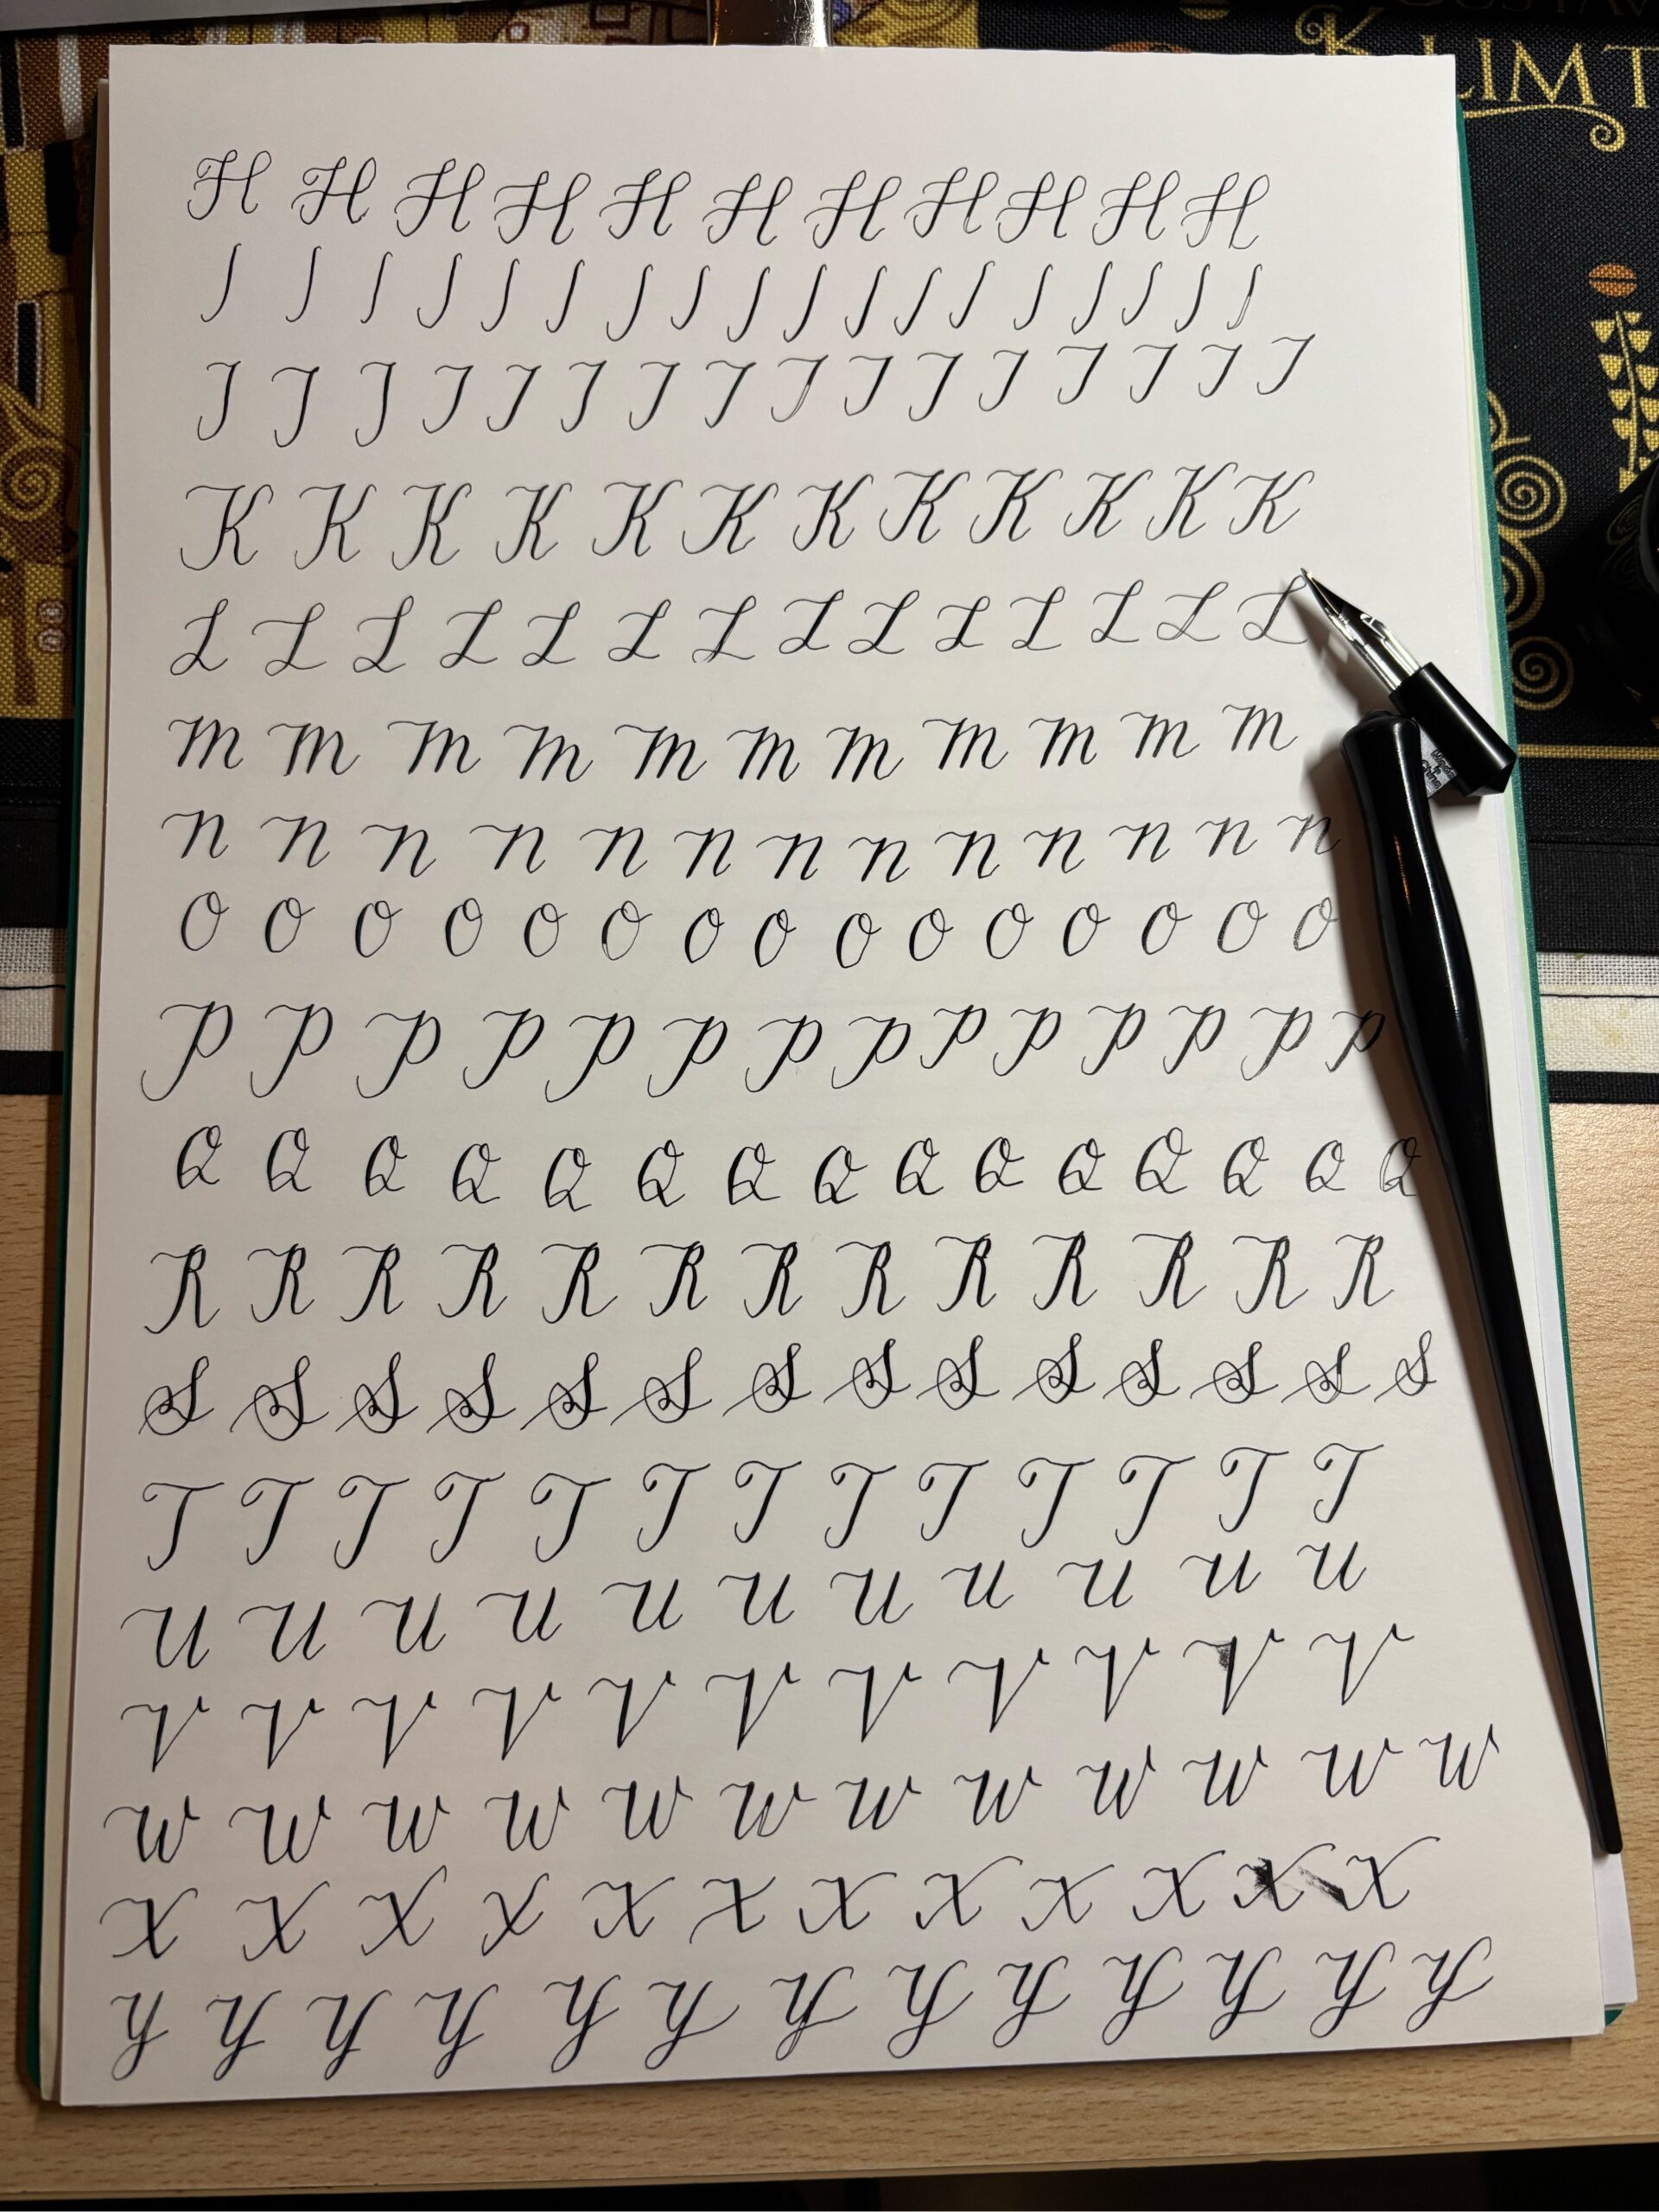 GUSTAV
KLIMT
H H H H H H H H H H H
I I I I I I I I I I I I I I I I I I
J J J J J J J J J J J J J J J J
K K K K K K K K K K K K
L L L L L L L L L L L L L L
M M M M M M M M M M M
N N N N N N N N N N N N N
O O O O O O O O O O O O O O O
P P P P P P P P P P P P P P
Q Q Q Q Q Q Q Q Q Q Q Q Q Q Q
R R R R R R R R R R R R R
S S S S S S S S S S S S S S
T T T T T T T T T T T T T
U U U U U U U U U U U
V V V V V V V V V V V
W W W W W W W W W W W W
X X X X X X X X X X X X
Y Y Y Y Y Y Y Y Y Y Y Y Y